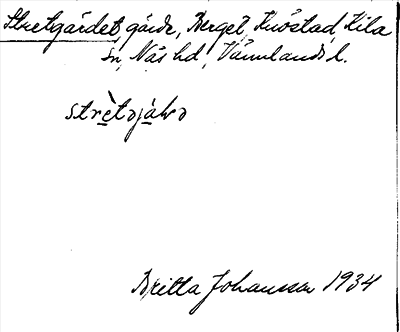 Stretgärdet, gärde, Berget, Knöstad, Kila
sn, Näs hd, Värmlands l.
strètəjálꞏə
Britta Johansson 1934